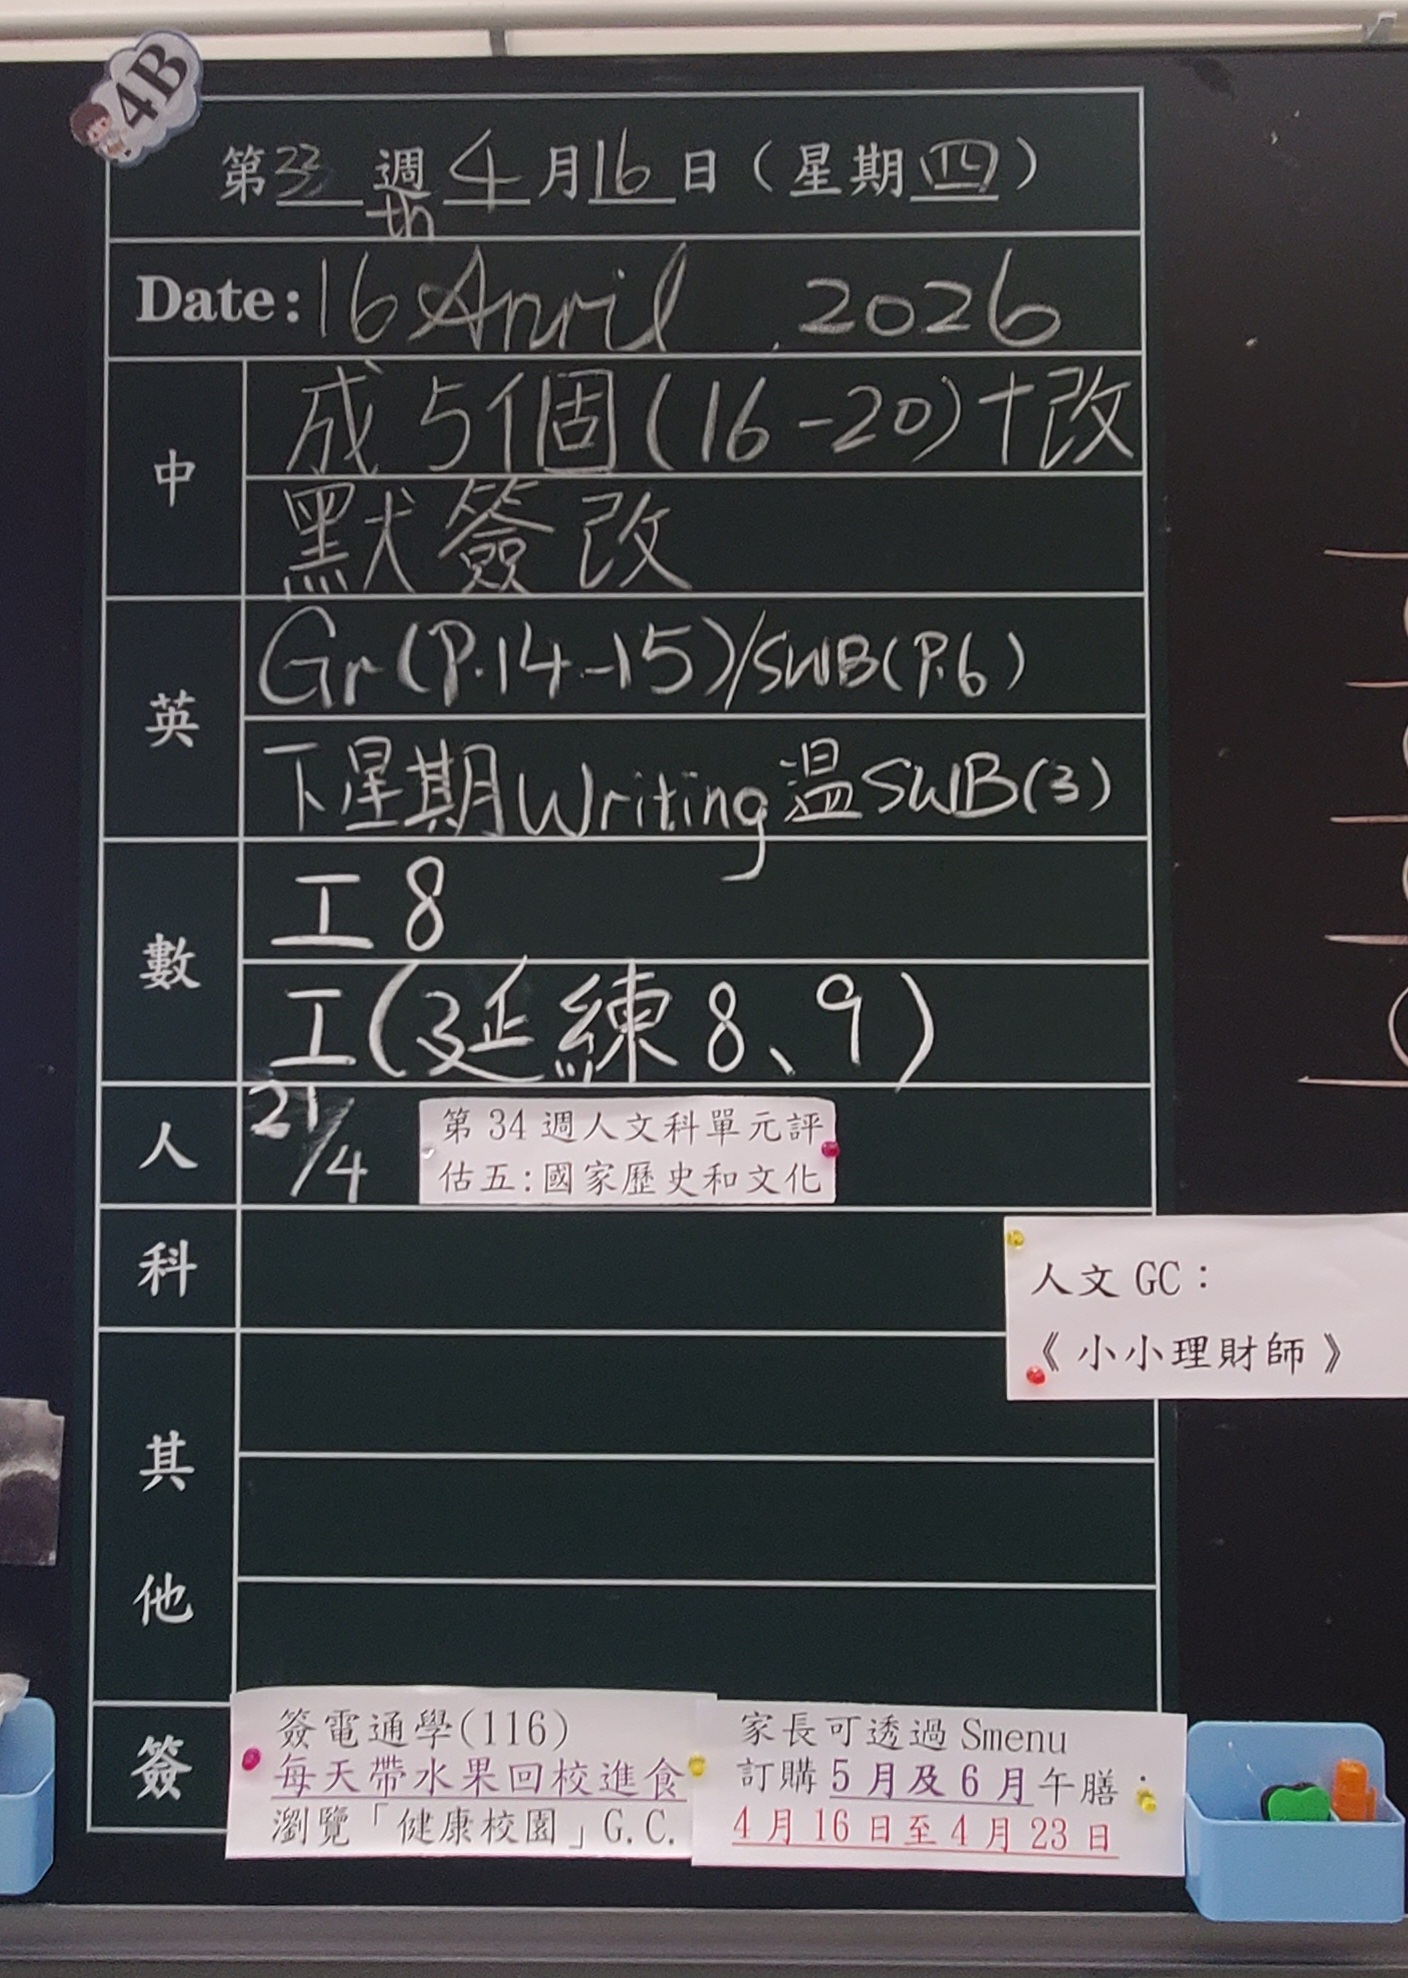 4B
第33週4月16日（星期四）
Date: 16th April, 2026
中
成5個(16-20)+改
默簽改
英
Gr(P.14-15)/SWB(P.6)
下星期Writing溫SWB(3)
數
工8
工(延練8、9)
人
21/4
第34週人文科單元評
估五:國家歷史和文化
科
人文 GC：
《小小理財師》
其他
簽
簽電通學(116)
每天帶水果回校進食
瀏覽「健康校園」G.C.
家長可透過 Smenu
訂購5月及6月午膳：
4月16日至4月23日